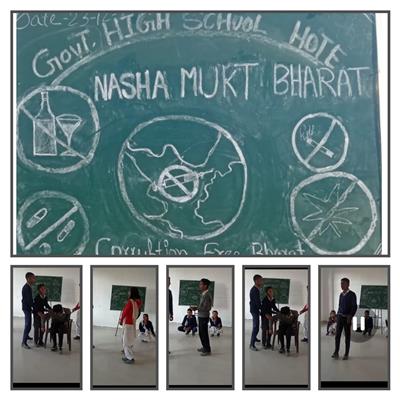 Date-23-12
GOVT. HIGH SCHOOL HOTE
NASHA MUKT BHARAT
Corruption Free Bharat